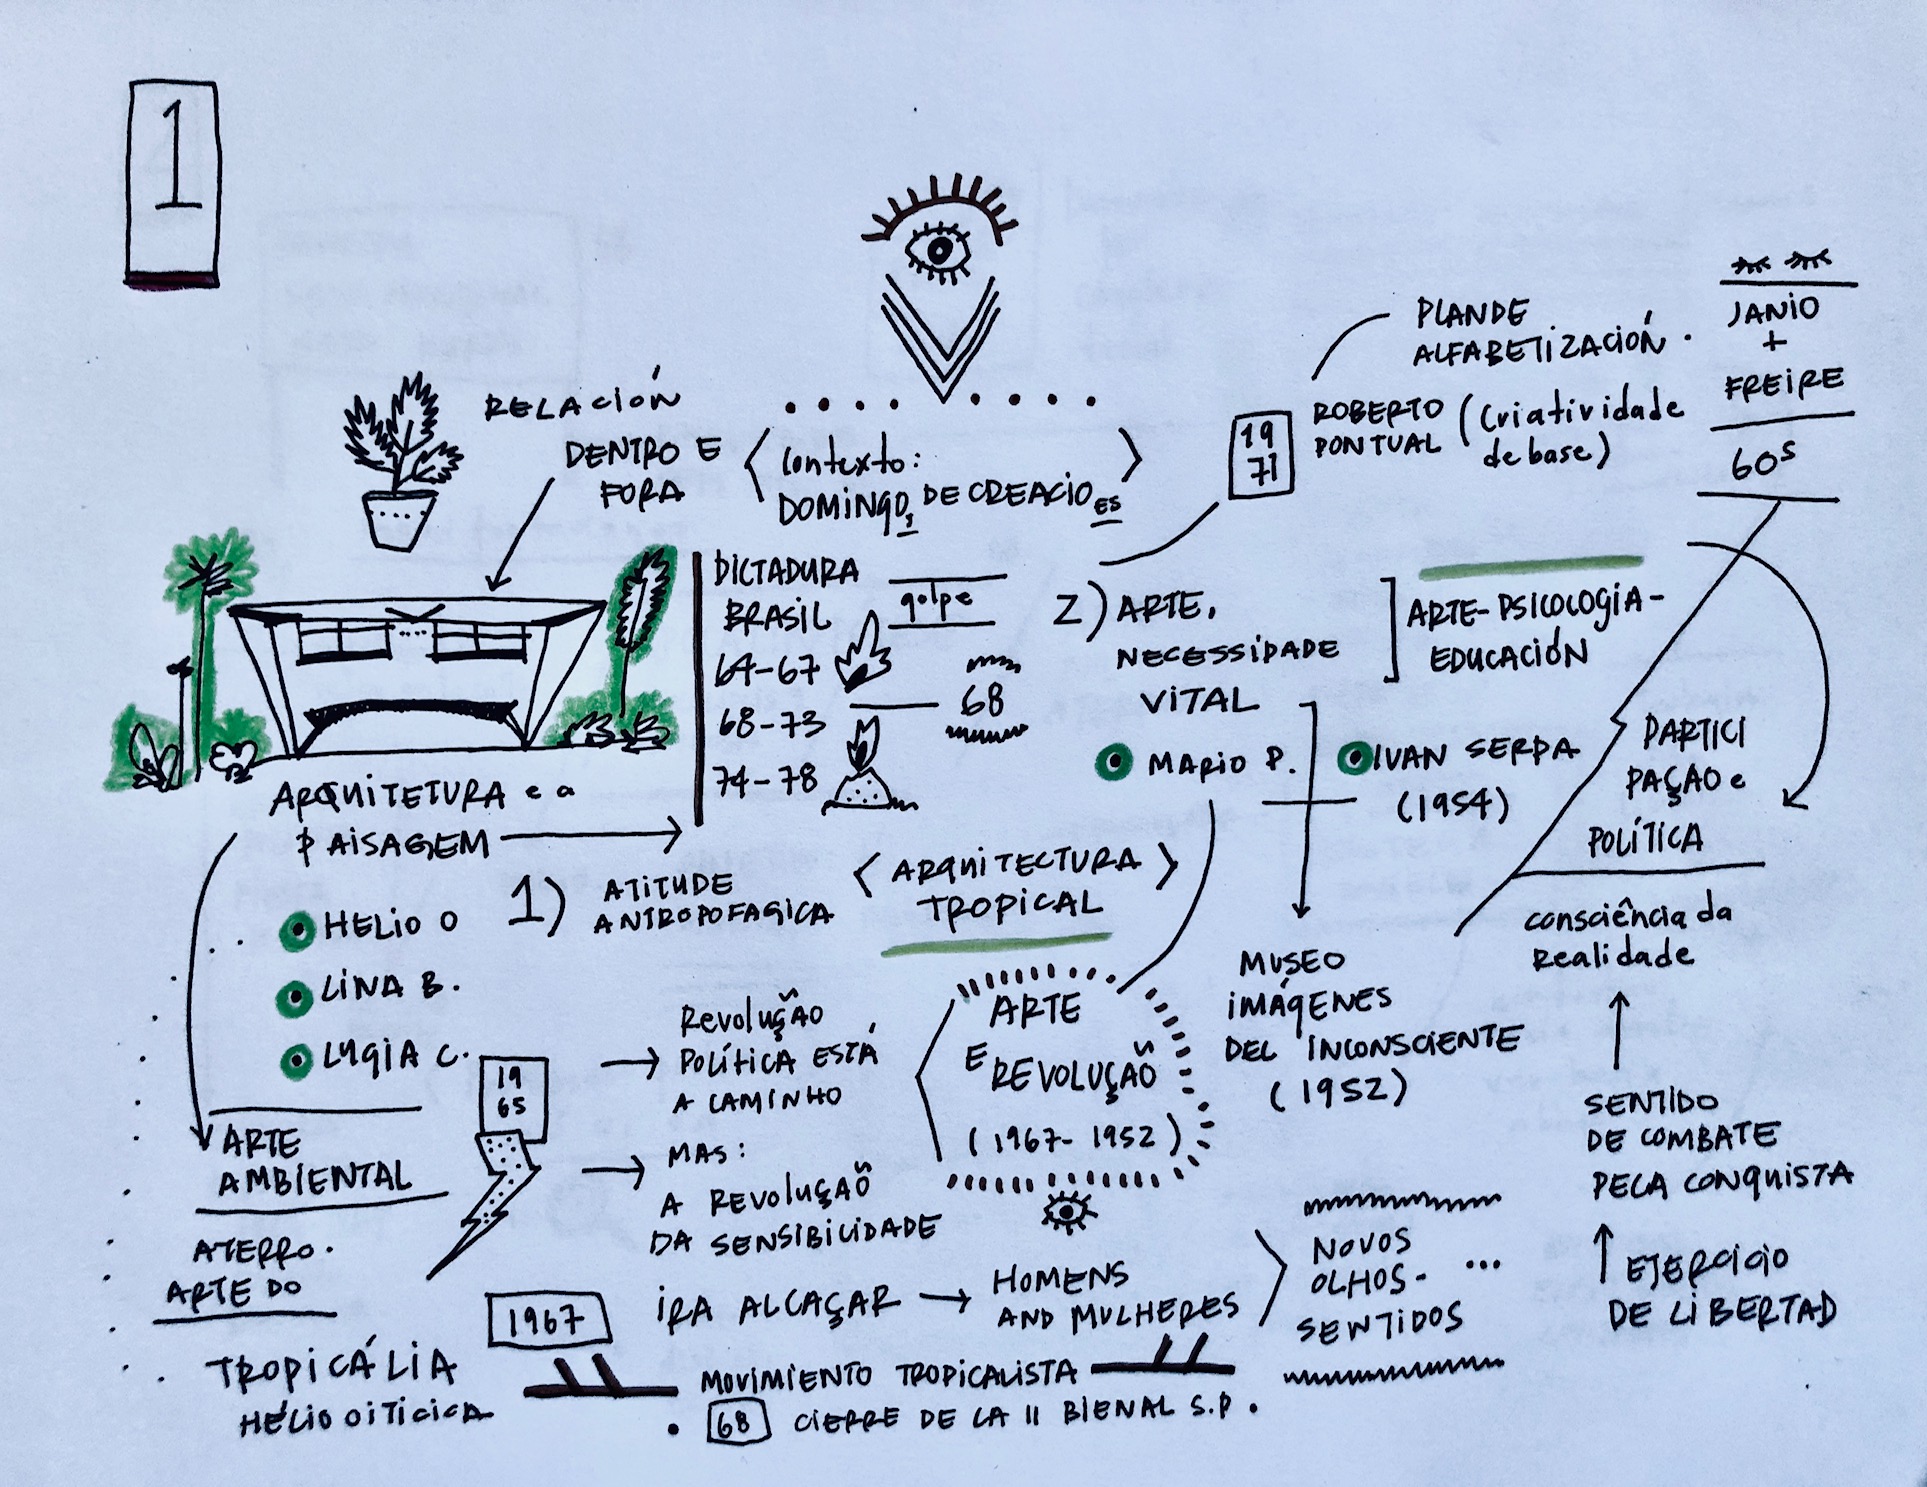 1
RELACIÓN
DENTRO E
FORA
< Contexto: >
DOMINGOs DE CREACIOES
PLANDE
ALFABETIZACIÓN.
19
71
ROBERTO
PONTUAL
(Criatividade
de base)
JANIO
+
FREIRE
60s
DICTADURA
BRASIL
64-67
68-73
74-78
golpe
68
2) ARTE,
NECESSIDADE
VITAL
ARTE-PSICOLOGIA-
EDUCACIÓN
MARIO P.
IVAN SERPA
(1954)
PARTICI
PAÇAO e
POLÍTICA
ARQUITETURA e a
PAISAGEM
1) ATITUDE
ANTROPOFAGICA
< ARQUITECTURA >
TROPICAL
HELIO O
LINA B.
LYGIA C.
ARTE
AMBIENTAL
ATERRO.
ARTE DO
TROPICÁLIA
HÉLIO OITICICA
19
65
Revolução
POLÍTICA ESTÁ
A CAMINHO
MAS:
A REVOLUÇAÕ
DA SENSIBILIDADE
ARTE
E REVOLUÇAÕ
(1967-1952)
MUSEO
IMÁGENES
DEL INCONSCIENTE
(1952)
consciência da
Realidade
SENTIDO
DE COMBATE
PELA CONQUISTA
EJERCICIO
DE LIBERTAD
1967
IRA ALCAÇAR → HOMENS
AND MULHERES
NOVOS
OLHOS- ...
SENTIDOS
MOVIMIENTO TROPICALISTA
. 68 CIERRE DE LA II BIENAL S.P.